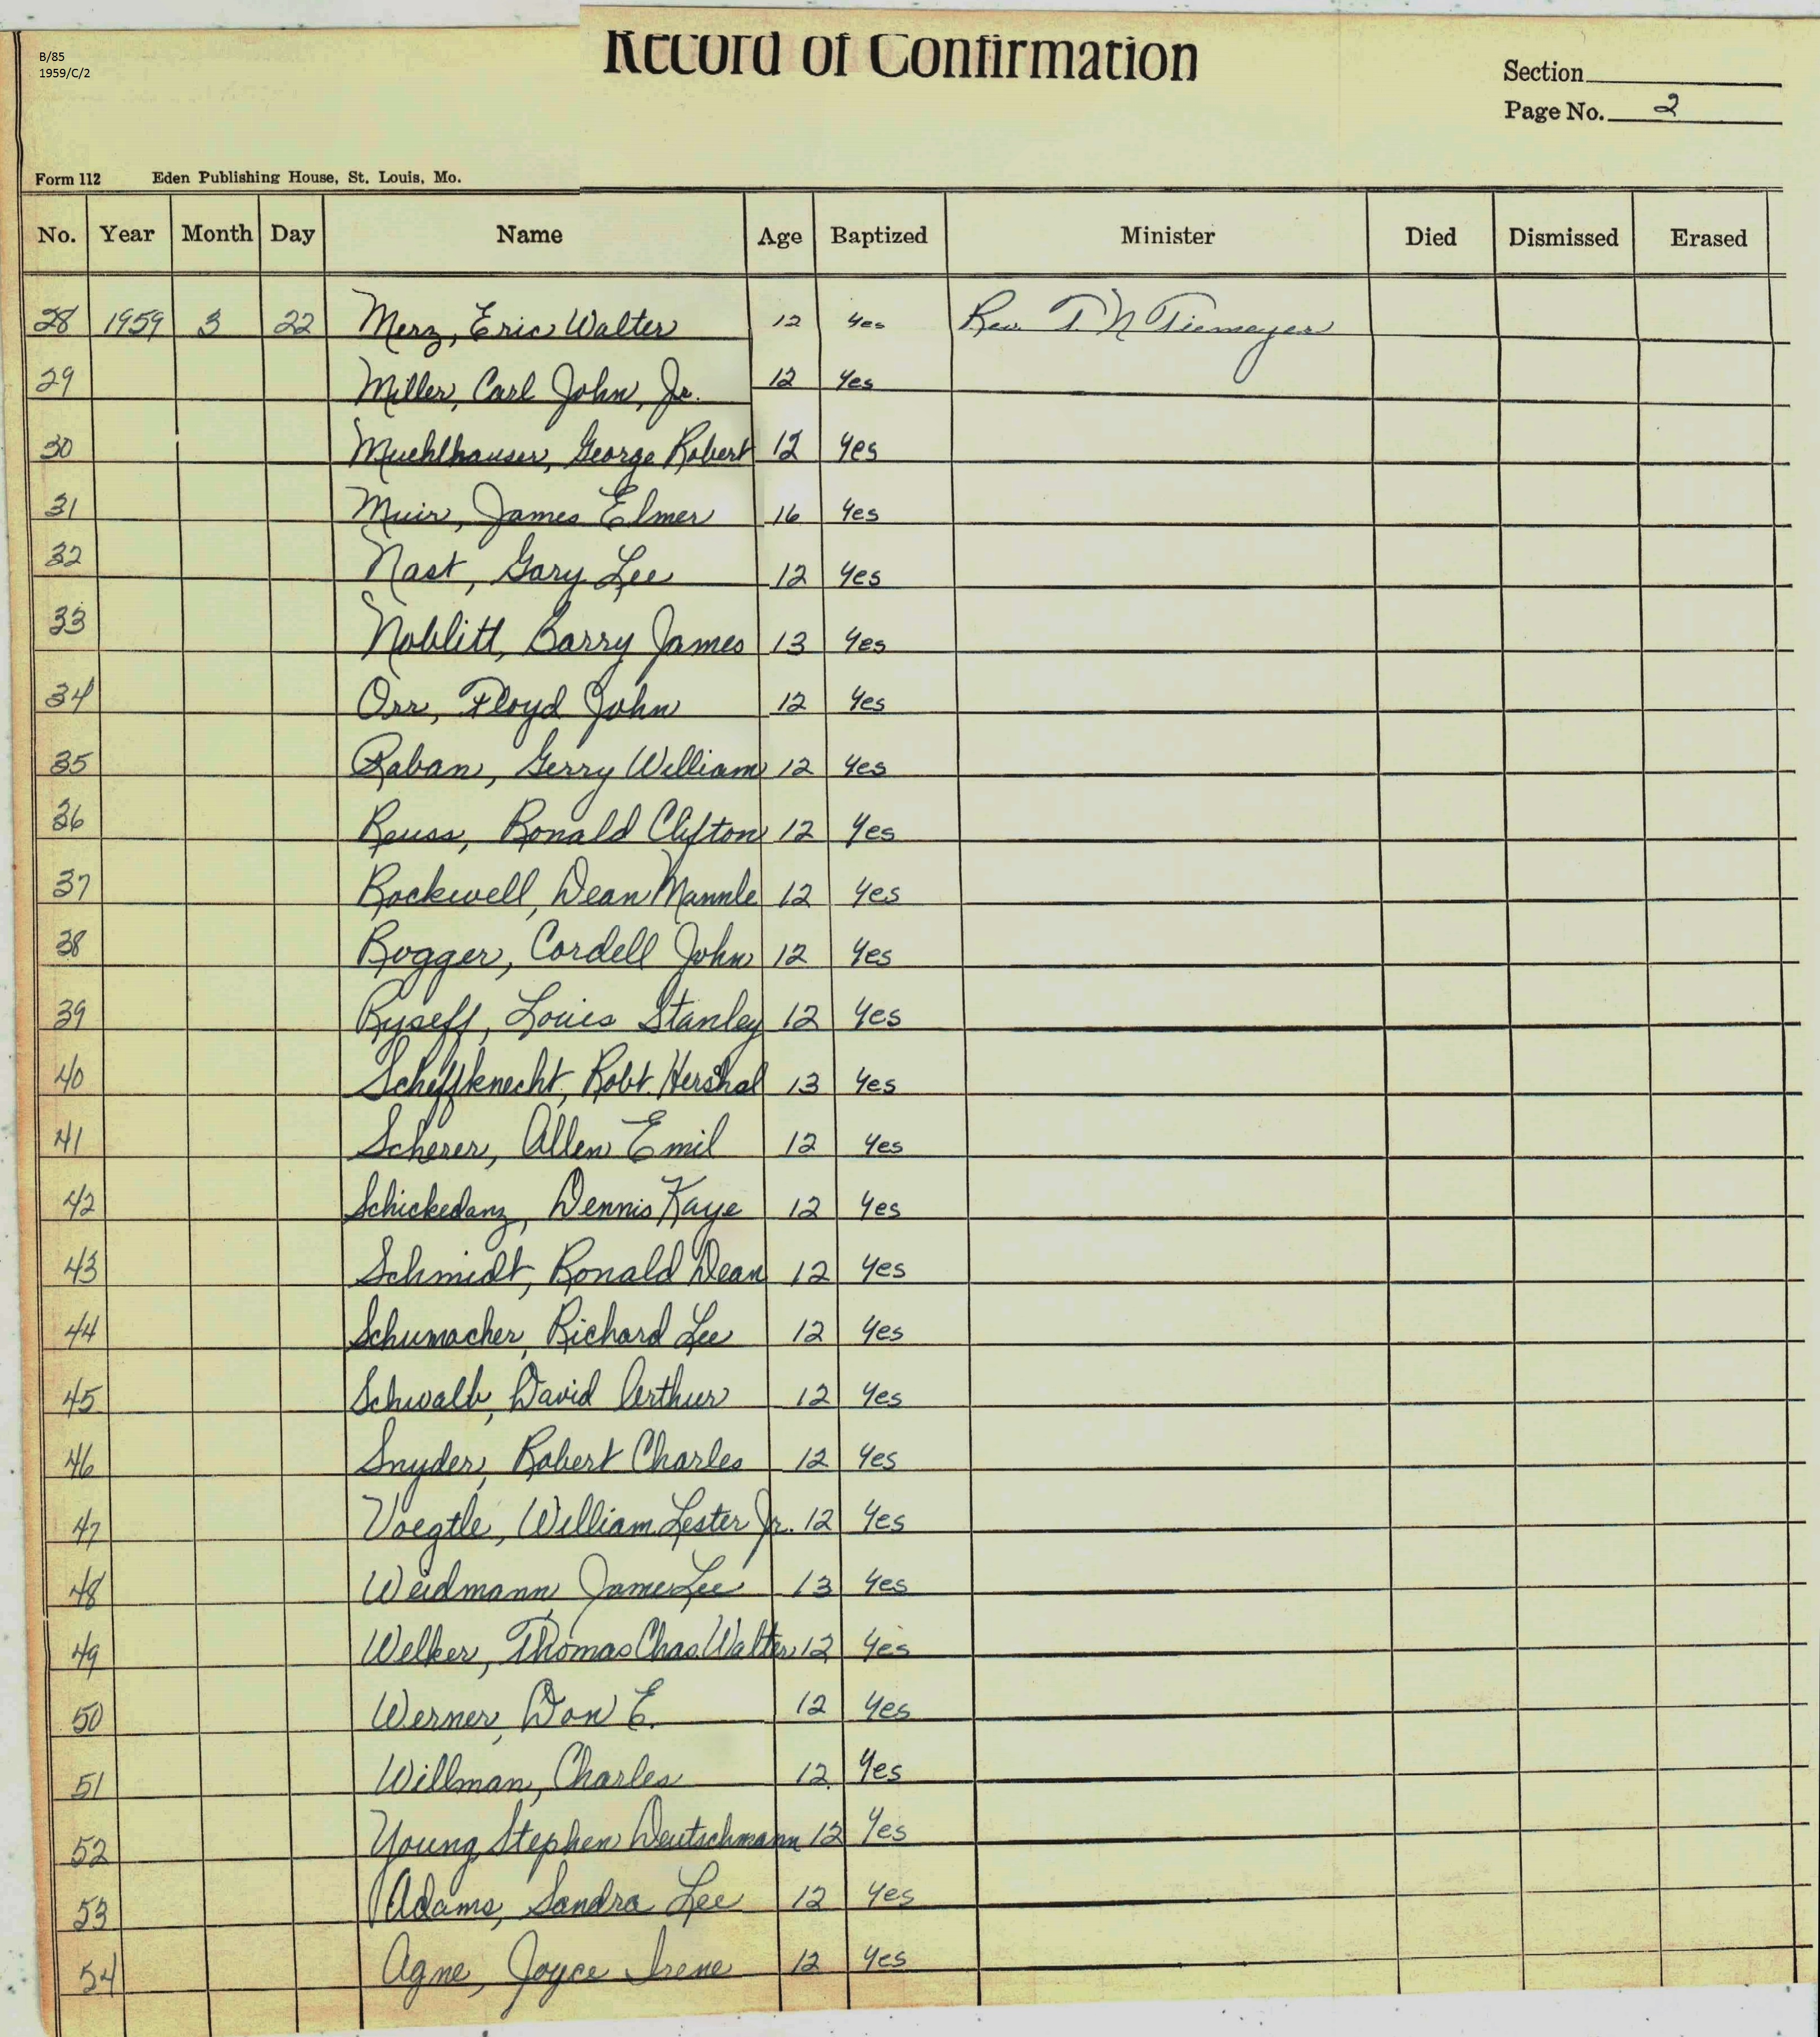 B/85
1959/C/2
Record of Confirmation
Section
Page No. 2
Form 112 Eden Publishing House, St. Louis, Mo.
No. Year Month Day Name Age Baptized Minister Died Dismissed Erased
28 1959 3 22 Merz, Eric Walter 12 Yes Rev. T. N Tiemeyer
29 Miller, Carl John, Jr. 12 Yes
30 Muehlhauser, George Robert 12 Yes
31 Muir, James Elmer 16 Yes
32 Nast, Gary Lee 12 Yes
33 Noblitt, Barry James 13 Yes
34 Orr, Floyd John 12 Yes
35 Raban, Gerry William 12 Yes
36 Reuss, Ronald Clifton 12 Yes
37 Rockwell, Dean Mannle 12 Yes
38 Rogger, Cordell John 12 Yes
39 Ryseff, Louis Stanley 12 Yes
40 Scheffknecht, Robt. Hershal 13 Yes
41 Scherer, Allen Emil 12 Yes
42 Schickedanz, Dennis Kaye 12 Yes
43 Schmidt, Ronald Dean 12 Yes
44 Schumacher, Richard Lee 12 Yes
45 Schwalb, David Arthur 12 Yes
46 Snyder, Robert Charles 12 Yes
47 Voegtle, William Lester Jr. 12 Yes
48 Weidmann, James Lee 13 Yes
49 Welker, Thomas Chas. Walter 12 Yes
50 Werner, Don E. 12 Yes
51 Willman, Charles 12 Yes
52 Young, Stephen Deutschmann 12 Yes
53 Adams, Sandra Lee 12 Yes
54 Agne, Joyce Irene 12 Yes